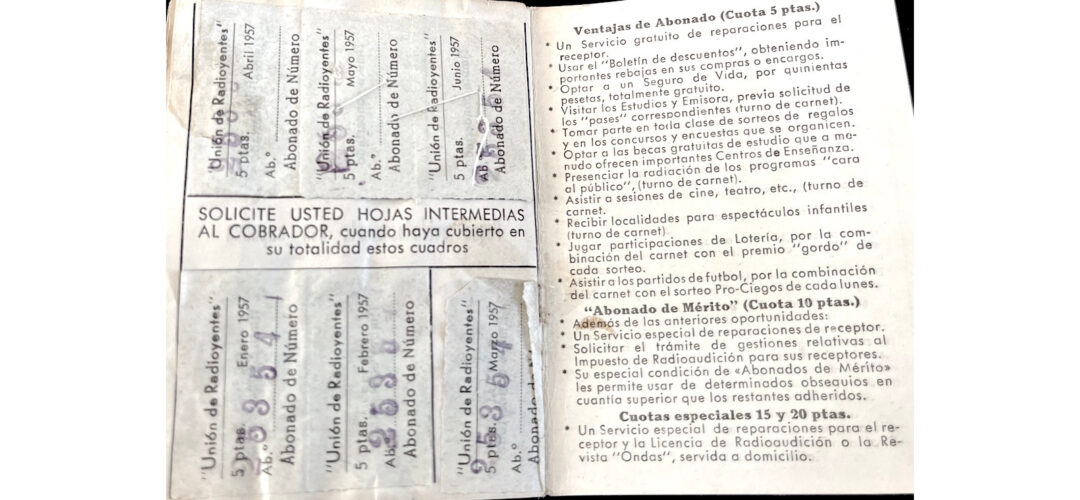 "Unión de Radioyentes"
5 ptas. Abril 1957
Ab.º
Abonado de Número
"Unión de Radioyentes"
5 ptas. Mayo 1957
Ab.º
Abonado de Número
"Unión de Radioyentes"
5 ptas. Junio 1957
Ab.º
Abonado de Número
SOLICITE USTED HOJAS INTERMEDIAS
AL COBRADOR, cuando haya cubierto en
su totalidad estos cuadros
"Unión de Radioyentes"
5 ptas. Enero 1957
Ab.º
Abonado de Número
"Unión de Radioyentes"
5 ptas. Febrero 1957
Ab.º
Abonado de Número
"Unión de Radioyentes"
5 ptas. Marzo 1957
Ab.º
Abonado de Nú
Ventajas de Abonado (Cuota 5 ptas.)
* Un Servicio gratuito de reparaciones para el
receptor.
* Usar el "Boletín de descuentos", obteniendo im-
portantes rebajas en sus compras o encargos.
* Optar a un Seguro de Vida, por quinientas
pesetas, totalmente gratuito.
* Visitar los Estudios y Emisora, previa solicitud de
los "pases" correspondientes (turno de carnet).
* Tomar parte en toda clase de sorteos de regalos
y en los concursos y encuestas que se organicen.
* Optar a las becas gratuitas de estudio que a me-
nudo ofrecen importantes Centros de Enseñanza.
* Presenciar la radiación de los programas "cara
al público", (turno de carnet).
* Asistir a sesiones de cine, teatro, etc., (turno de
carnet.
* Recibir localidades para espectáculos infantiles
(turno de carnet).
* Jugar participaciones de Lotería, por la com-
binación del carnet con el premio "gordo" de
cada sorteo.
* Asistir a los partidos de futbol, por la combinación
del carnet con el sorteo Pro-Ciegos de cada lunes.
"Abonado de Mérito" (Cuota 10 ptas.)
* Además de las anteriores oportunidades:
* Un Servicio especial de reparaciones de receptor.
* Solicitar el trámite de gestiones relativas al
Impuesto de Radioaudición para sus receptores.
* Su especial condición de «Abonados de Mérito»
les permite usar de determinados obsequios en
cuantía superior que los restantes adheridos.
Cuotas especiales 15 y 20 ptas.
* Un Servicio especial de reparaciones para el re-
ceptor y la Licencia de Radioaudición o la Re-
vista "Ondas", servida a domicilio.